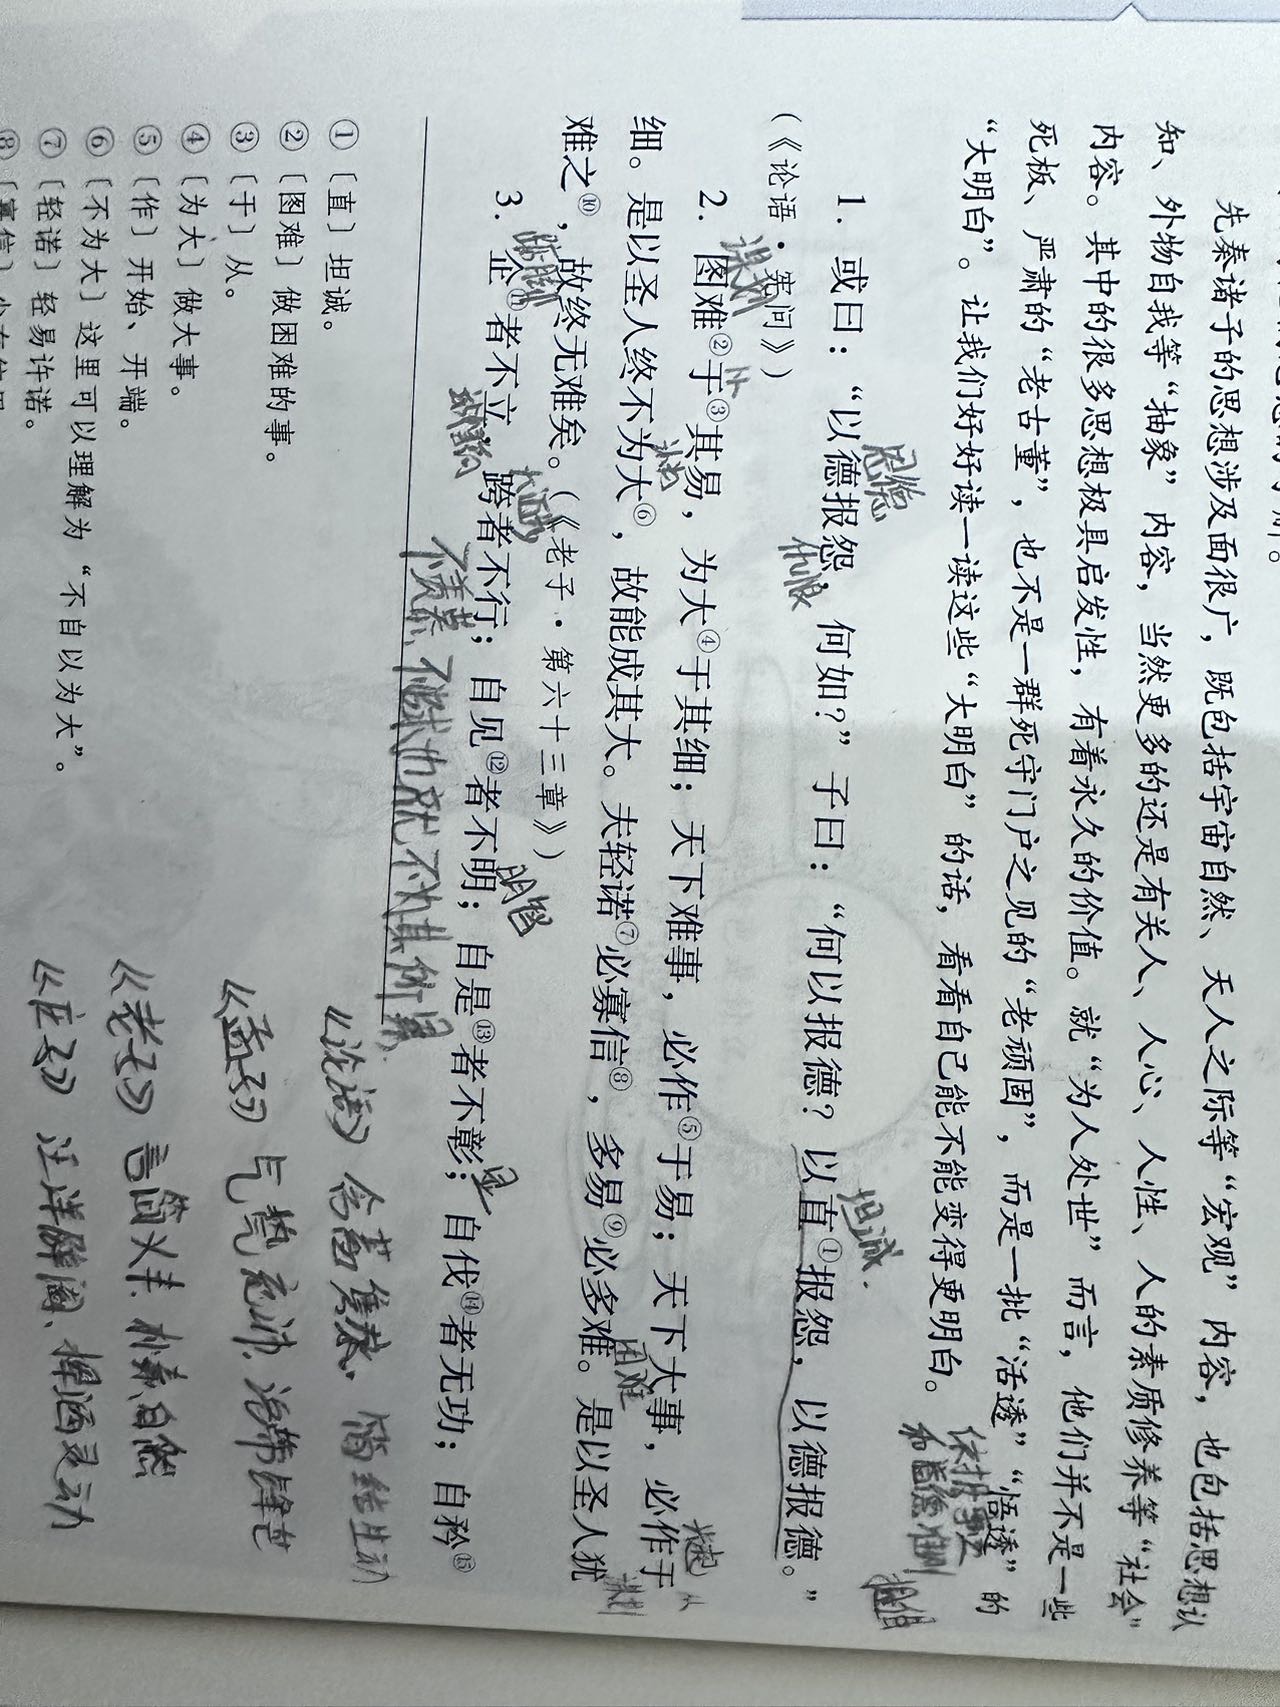 先秦诸子的思想涉及面很广，既包括宇宙自然、天人之际等“宏观”内容，也包括思想认
知、外物自我等“抽象”内容，当然更多的还是有关人、人心、人性、人的素质修养等“社会”
内容。其中的很多思想极具启发性，有着永久的价值。就“为人处世”而言，他们并不是一些
死板、严肃的“老古董”，也不是一群死守门户之见的“老顽固”，而是一批“活透”“悟透”的
“大明白”。让我们好好读一读这些“大明白”的话，看看自己能不能变得更明白。
恩德
坦诚
1. 或曰：“以德报怨，何如？”子曰：“何以报德？以直①报怨，以德报德。”
仇恨
（《论语·宪问》）
谋划
从
2. 图难②于③其易，为大④于其细；天下难事，必作⑤于易；天下大事，必作于
细。是以圣人终不为大⑥，故能成其大。夫轻诺⑦必寡信⑧，多易⑨必多难。是以圣人犹
困难
难之⑩，故终无难矣。（《老子·第六十三章》）
明智
显
3. 企⑪者不立，跨者不行；自见⑫者不明；自是⑬者不彰；自伐⑭者无功；自矜⑮
①〔直〕坦诚。
②〔图难〕做困难的事。
③〔于〕从。
④〔为大〕做大事。
⑤〔作〕开始、开端。
⑥〔不为大〕这里可以理解为“不自以为大”。
⑦〔轻诺〕轻易许诺。
《论语》含蓄隽永、简练生动
《孟子》气势充沛，
《老子》言简义丰、朴素自然
《庄子》汪洋